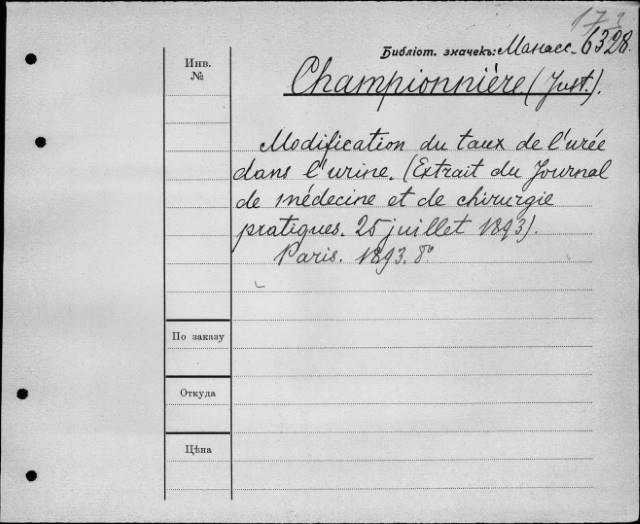 173
Библіот. значекъ: Манасс. 6328.
Инв.
№
Championnière (Just.).
Modification du taux de l'urée
dans l'urine. (Extrait du Journal
de médecine et de chirurgie
pratiques. 25 juillet 1893).
Paris. 1893. 8°
По заказу
Откуда
Цѣна